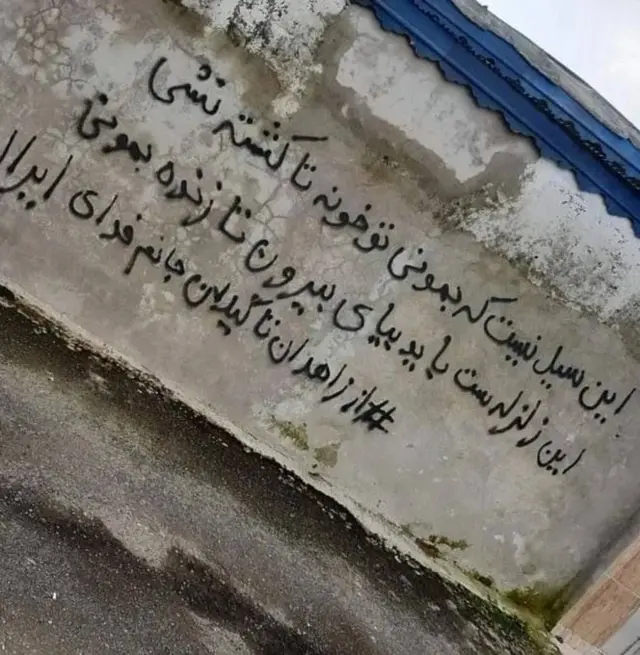 این سیل نیست که بمونی تو خونه تا کشته نشی
این زلزله ست باید بیای بیرون تا زنده بمونی
#از زاهدان تا گیلان جانم فدای ایران